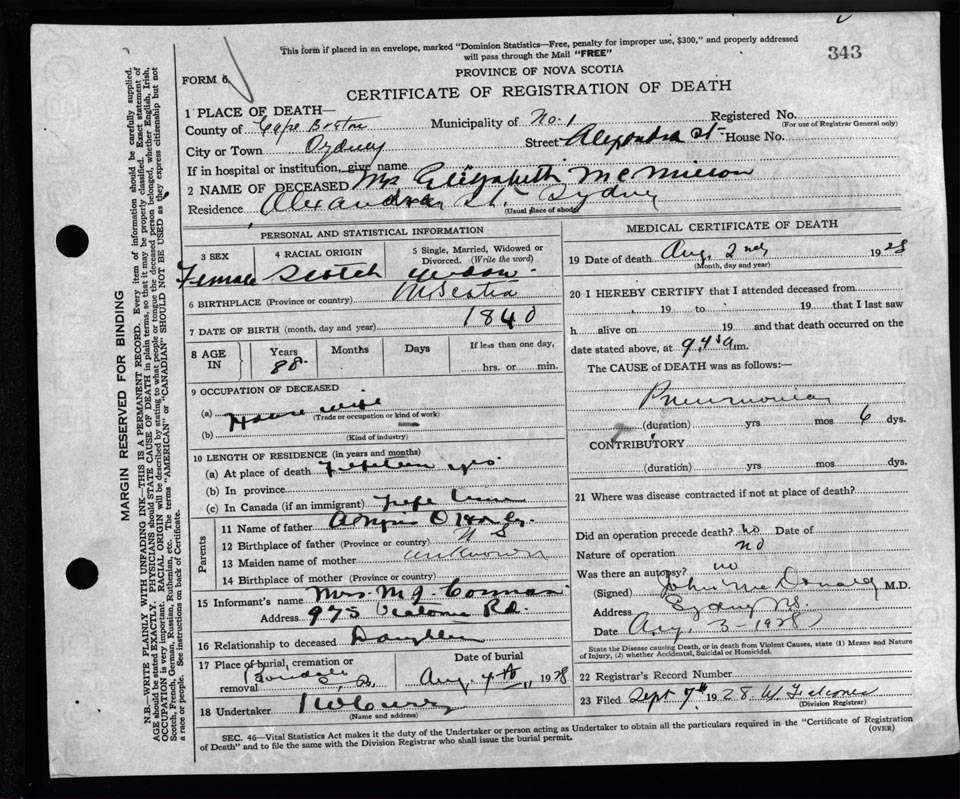 This form if placed in an envelope, marked "Dominion Statistics—Free, penalty for improper use, $300," and properly addressed
will pass through the Mail "FREE"
343
FORM 6
PROVINCE OF NOVA SCOTIA
CERTIFICATE OF REGISTRATION OF DEATH
1 PLACE OF DEATH—
Registered No.
(For use of Registrar General only)
County of Cape Breton Municipality of No. 1
City or Town Sydney Street Alexandra St House No.
If in hospital or institution, give name
2 NAME OF DECEASED Mrs Elizabeth
Residence Alexandra St. Sydney
(Usual place of abode)
PERSONAL AND STATISTICAL INFORMATION
3 SEX 4 RACIAL ORIGIN 5 Single, Married, Widowed or Divorced. (Write the word)
Female Scotch Widow
6 BIRTHPLACE (Province or country) N Scotia
7 DATE OF BIRTH (month, day and year) 1840
8 AGE IN Years Months Days If less than one day,
88 hrs. or min.
9 OCCUPATION OF DECEASED
(a) House wife
(Trade or occupation or kind of work)
(b)
(Kind of industry)
10 LENGTH OF RESIDENCE (in years and months)
(a) At place of death yrs
(b) In province
(c) In Canada (if an immigrant) Life time
Parents
11 Name of father Angus
12 Birthplace of father (Province or country) N S
13 Maiden name of mother unknown
14 Birthplace of mother (Province or country)
15 Informant's name Mrs. M J
Address 975 Victoria Rd.
16 Relationship to deceased Daughter
17 Place of burial, cremation or removal Date of burial
C. B. Aug 4th 1928
18 Undertaker
(Name and address)
MEDICAL CERTIFICATE OF DEATH
19 Date of death Aug 2nd 1928
(Month, day and year)
20 I HEREBY CERTIFY that I attended deceased from
19 to 19 that I last saw
h alive on 19 and that death occurred on the
date stated above, at 9.45 a m.
The CAUSE of DEATH was as follows:—
Pneumonia
(duration) yrs mos 6 dys.
CONTRIBUTORY
(duration) yrs. mos. dys.
21 Where was disease contracted if not at place of death?
Did an operation precede death? no Date of
Nature of operation no
Was there an autopsy? no
(Signed) John McDonald M.D.
Address Sydney N.S.
Date Aug 3-1928
State the Disease causing Death, or in death from Violent Causes, state (1) Means and Nature
of Injury, (2) whether Accidental, Suicidal or Homicidal.
22 Registrar's Record Number
23 Filed Sept 7th 1928
(Division Registrar)
SEC. 46—Vital Statistics Act makes it the duty of the Undertaker or person acting as Undertaker to obtain all the particulars required in the "Certificate of Registration
of Death" and to file the same with the Division Registrar who shall issue the burial permit.
(OVER)
MARGIN RESERVED FOR BINDING
N.B.—WRITE PLAINLY WITH UNFADING INK—THIS IS A PERMANENT RECORD. Every item of information should be carefully supplied.
AGE should be stated EXACTLY. PHYSICIANS should STATE CAUSE OF DEATH in plain terms, so that it may be properly classified. Exact statement of
OCCUPATION is very important. RACIAL ORIGIN will be described by stating to what people or tongue the deceased person belonged, whether English, Irish,
Scotch, French, German, Russian, Ruthenian, etc. The terms "AMERICAN" or "CANADIAN" SHOULD NOT BE USED as they express citizenship but not
a race or people. See instructions on back of Certificate.